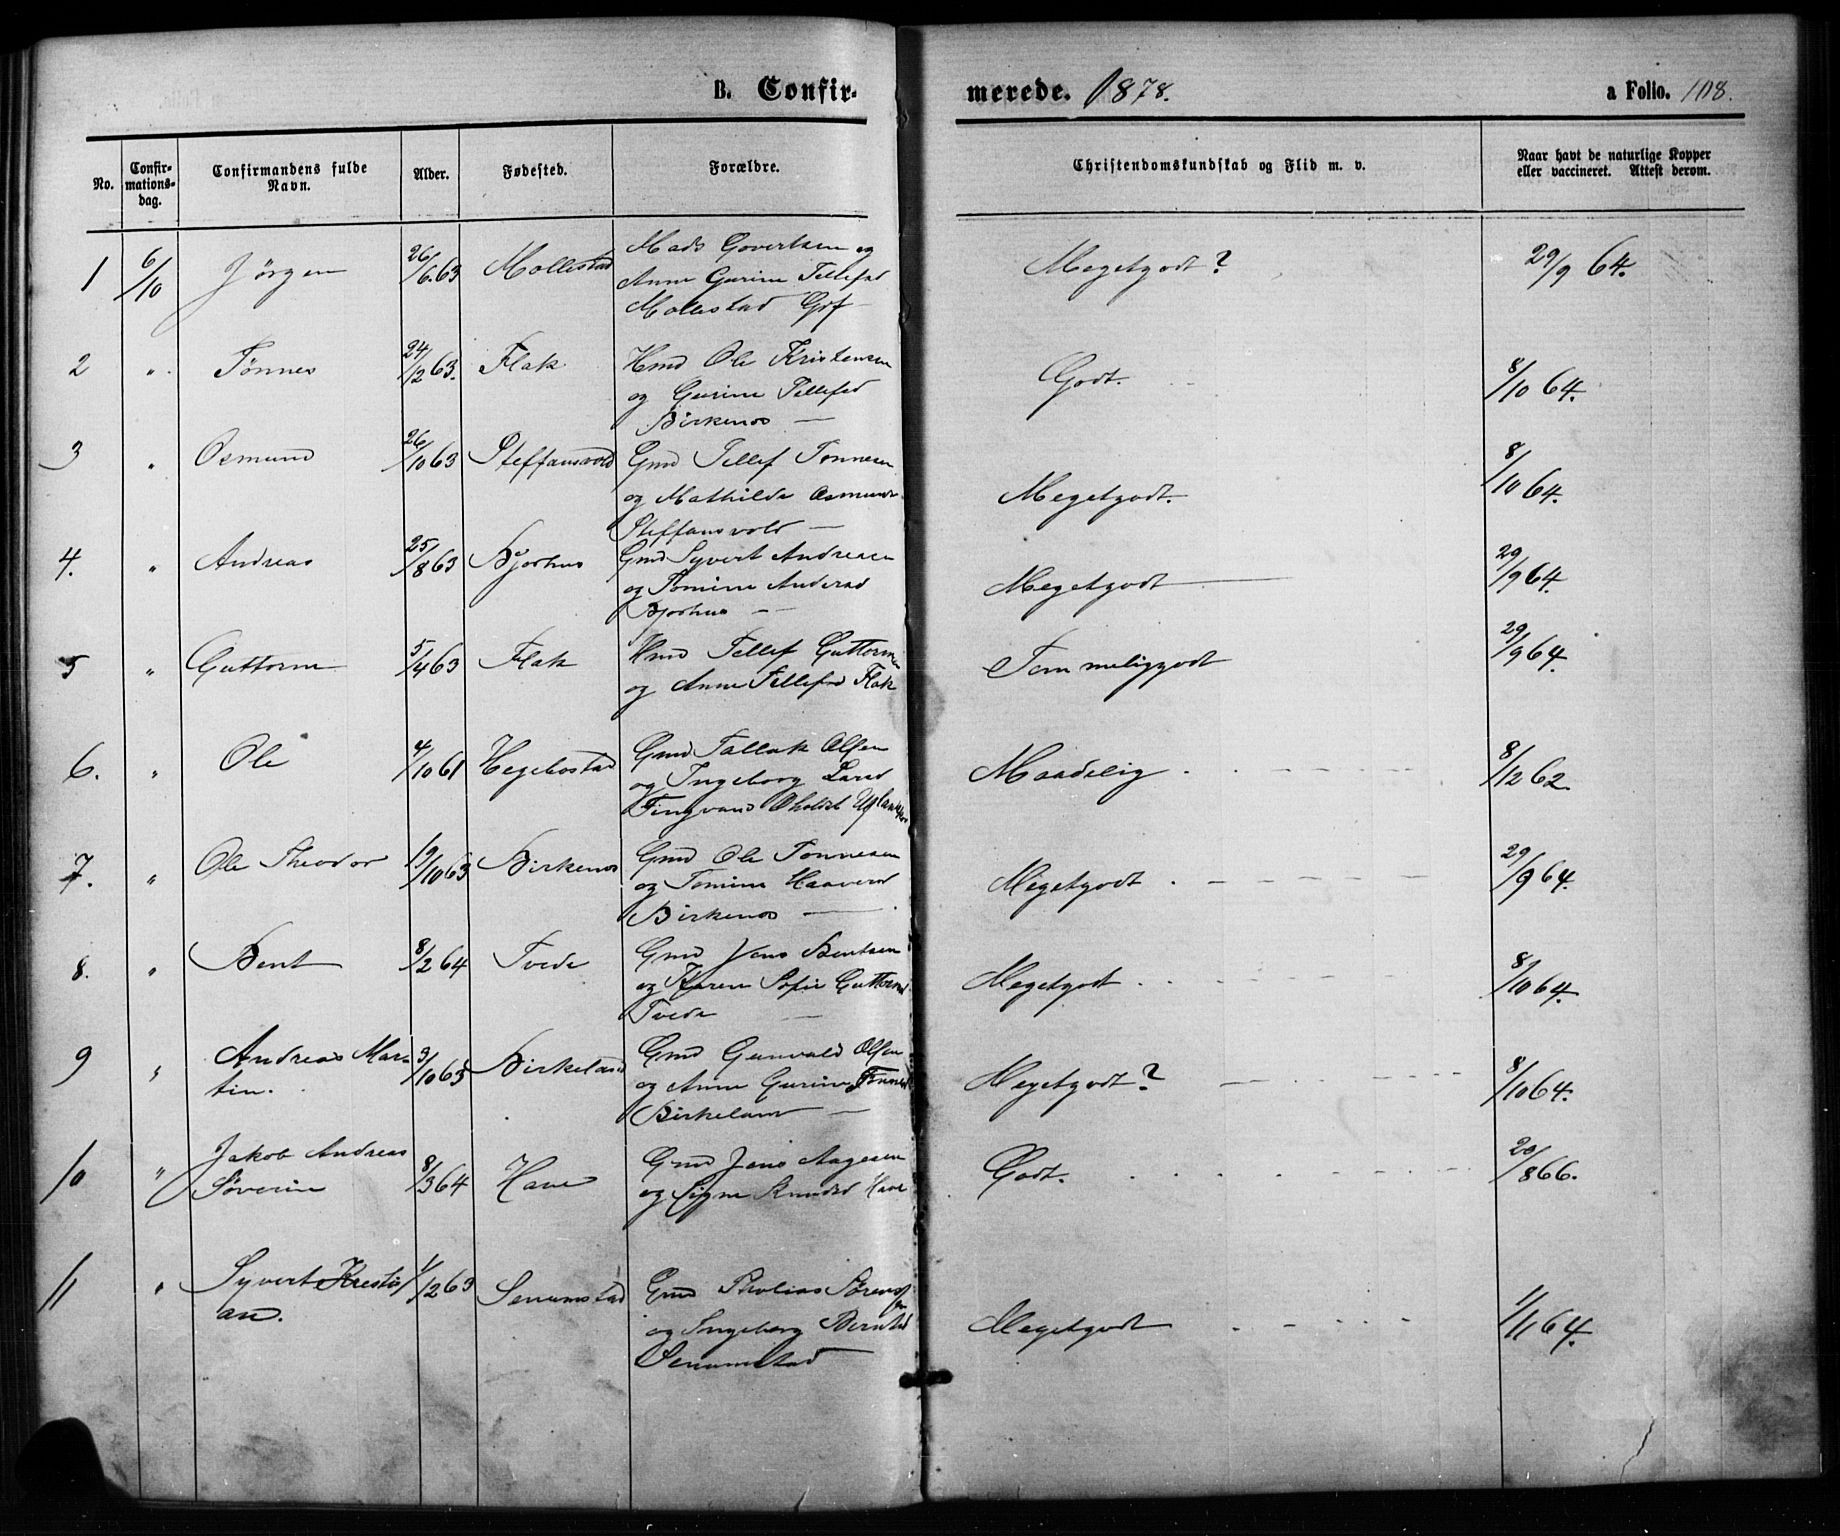 B. Confir-
merede. 1878.
a Folio. 108.
No.
Confir-
mations-
dag.
Confirmandens fulde
Navn.
Alder.
Fødested.
Forældre.
Christendomskundskab og Flid m. v.
Naar havt de naturlige Kopper
eller vaccineret. Attest derom.
1 6/10 Jørgen 26/6 63 Mollestad
Mads Govertsen og
Anne Gurine Tellefsd
Mollestad Gbf
Megetgodt? 29/9 64.
2 " Tønnes 24/12 63. Flak
Hmd Ole Kristensen
og Gurine Tellefsd
Birkenes —
Godt. 8/10 64.
3 " Osmund 26/10 63 Steffansvold
Gmd Tellef Tønnesen
og Mathilde Osmunds
Steffansvold —
Megetgodt. 8/10 64.
4. " Andreas 25/8 63 Bjorhus
Gmd Syvert Andreasen
og Tomine Andersd
Bjorhus —
Megetgodt 29/9 64.
5 " Guttorm 5/4 63 Flak
Hmd Tellef Guttormsen
og Anne Tellefsd Flak
Temmeliggodt 29/9 64.
6. " Ole 4/10 61 Hegebostad
Gmd Tallak Olsen
og Ingeborg Larsd
Tingvand
Maadelig 8/12 62.
7. " Ole Theodor 19/10 63 Birkenes
Gmd Ole Tønnesen
og Tomine Haaversd
Birkenes —
Megetgodt 29/9 64.
8. " Bent 8/2 64 Tvede
Gmd Jens Bentsen
og Karen Sofie Guttormsd
Tvede —
Megetgodt 8/10 64.
9 " Andreas Mar-
tin. 3/10 63 Birkeland
Gmd Gunvald Olsen
og Anne Gurine Tønnesd
Birkeland —
Megetgodt? 8/10 64.
10 " Jakob Andreas
Søverin 8/3 64 Have
Gmd Jens Aagesen
og Signe Knudsd Have
Godt. 20/8 66.
11 " Syvert Kresti
an. 1/12 63 Senumstad
Gmd Søren
sen
og Ingeborg Berntsd
Senumstad
Megetgodt 1/11 64.